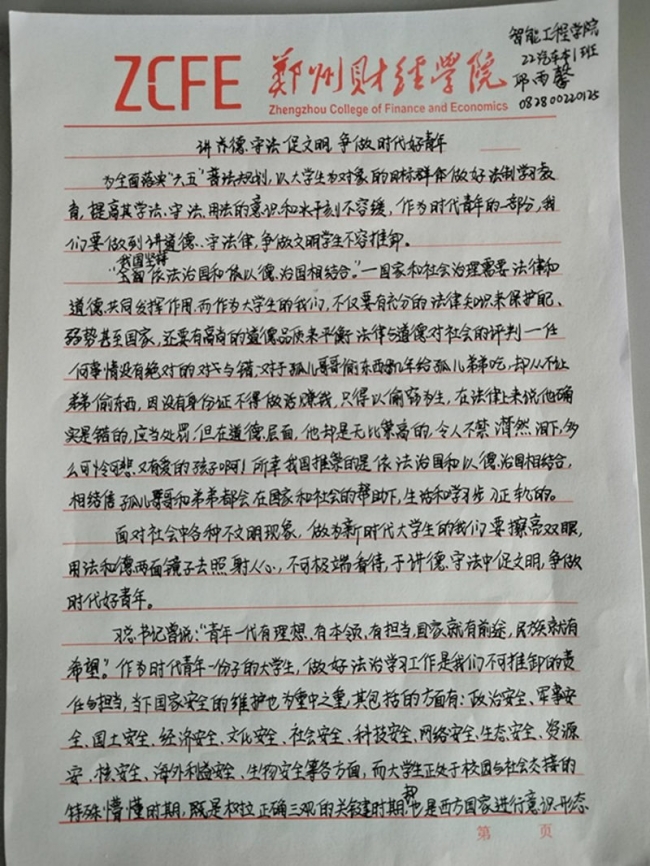 智能工程学院
22汽车本1班
邱雨馨
082800220125
ZCFE 郑州财经学院
Zhengzhou College of Finance and Economics
讲道德、守法促文明,争做时代好青年
为全面落实“六五”普法规划,以大学生为对象的目标群体做好法制学习教
育,提高其学法、守法、用法的意识和水平刻不容缓,作为时代青年的一部分,我
们要做到讲道德、守法律,争做文明学生不容推卸。
我国坚持
“依法治国和以德治国相结合。”一国家和社会治理需要法律和
道德共同发挥作用,而作为大学生的我们,不仅要有充分的法律知识来保护
弱势甚至国家,还要有高尚的道德品质来平衡法律与道德对社会的评判一任
何事情没有绝对的对与错,对于孤儿哥哥偷东西给孤儿弟弟吃,却从不让
弟弟偷东西,因没有身份证不得做活赚钱,只得以偷窃为生,在法律上来说他确
实是错的,应当处罚;但在道德层面,他却是无比崇高的,令人不禁潸然泪下,多
么可怜可悲又有爱的孩子啊!所幸我国推崇的是依法治国和以德治国相结合,
相结信孤儿哥哥和弟弟都会在国家和社会的帮助下,生活和学习步入正轨的。
面对社会中各种不文明现象,做为新时代大学生的我们要擦亮双眼,
用法和德两面镜子去照射人心,不可极端看待,于讲德、守法中促文明,争做
时代好青年。
习总书记曾说:“青年一代有理想、有本领、有担当,国家就有前途,民族就有
希望。”作为时代青年一份子的大学生,做好法治学习工作是我们不可推卸的责
任与担当,当下国家安全的维护也为重中之重,其包括的方面有:政治安全、军事安
全、国土安全、经济安全、文化安全、社会安全、科技安全、网络安全、生态安全、资源
安、核安全、海外利益安全、生物安全等各方面,而大学生正处于校园与社会交接的
特殊懵懂时期,既是树立正确三观的关键时期,却也是西方国家进行意识形态
第 页